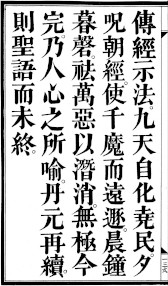 傳經示法。九天自化。幸民夕
呪朝經使千魔而遠遯。晨鐘
暮磬祛萬惡以潛消。無極今
完乃人心之所喻。丹元再續。
則聖語而未終。